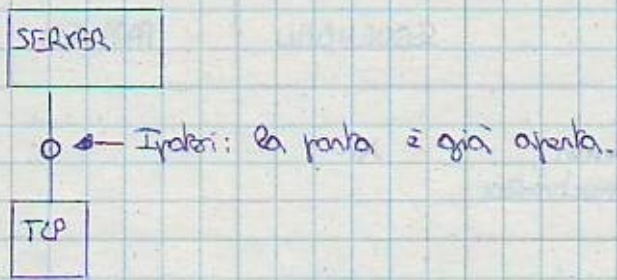 SERVER
Ipotesi: la porta è già aperta.
TCP